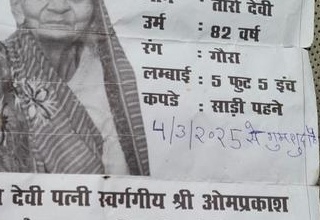 : तारा देवी
उर्म : 82 वर्ष
रंग : गौरा
लम्बाई : 5 फुट 5 इंच
कपडे : साड़ी पहने
4/3/2025 से गुमशुदा है
देवी पत्नी स्वर्गगीय श्री ओमप्रकाश